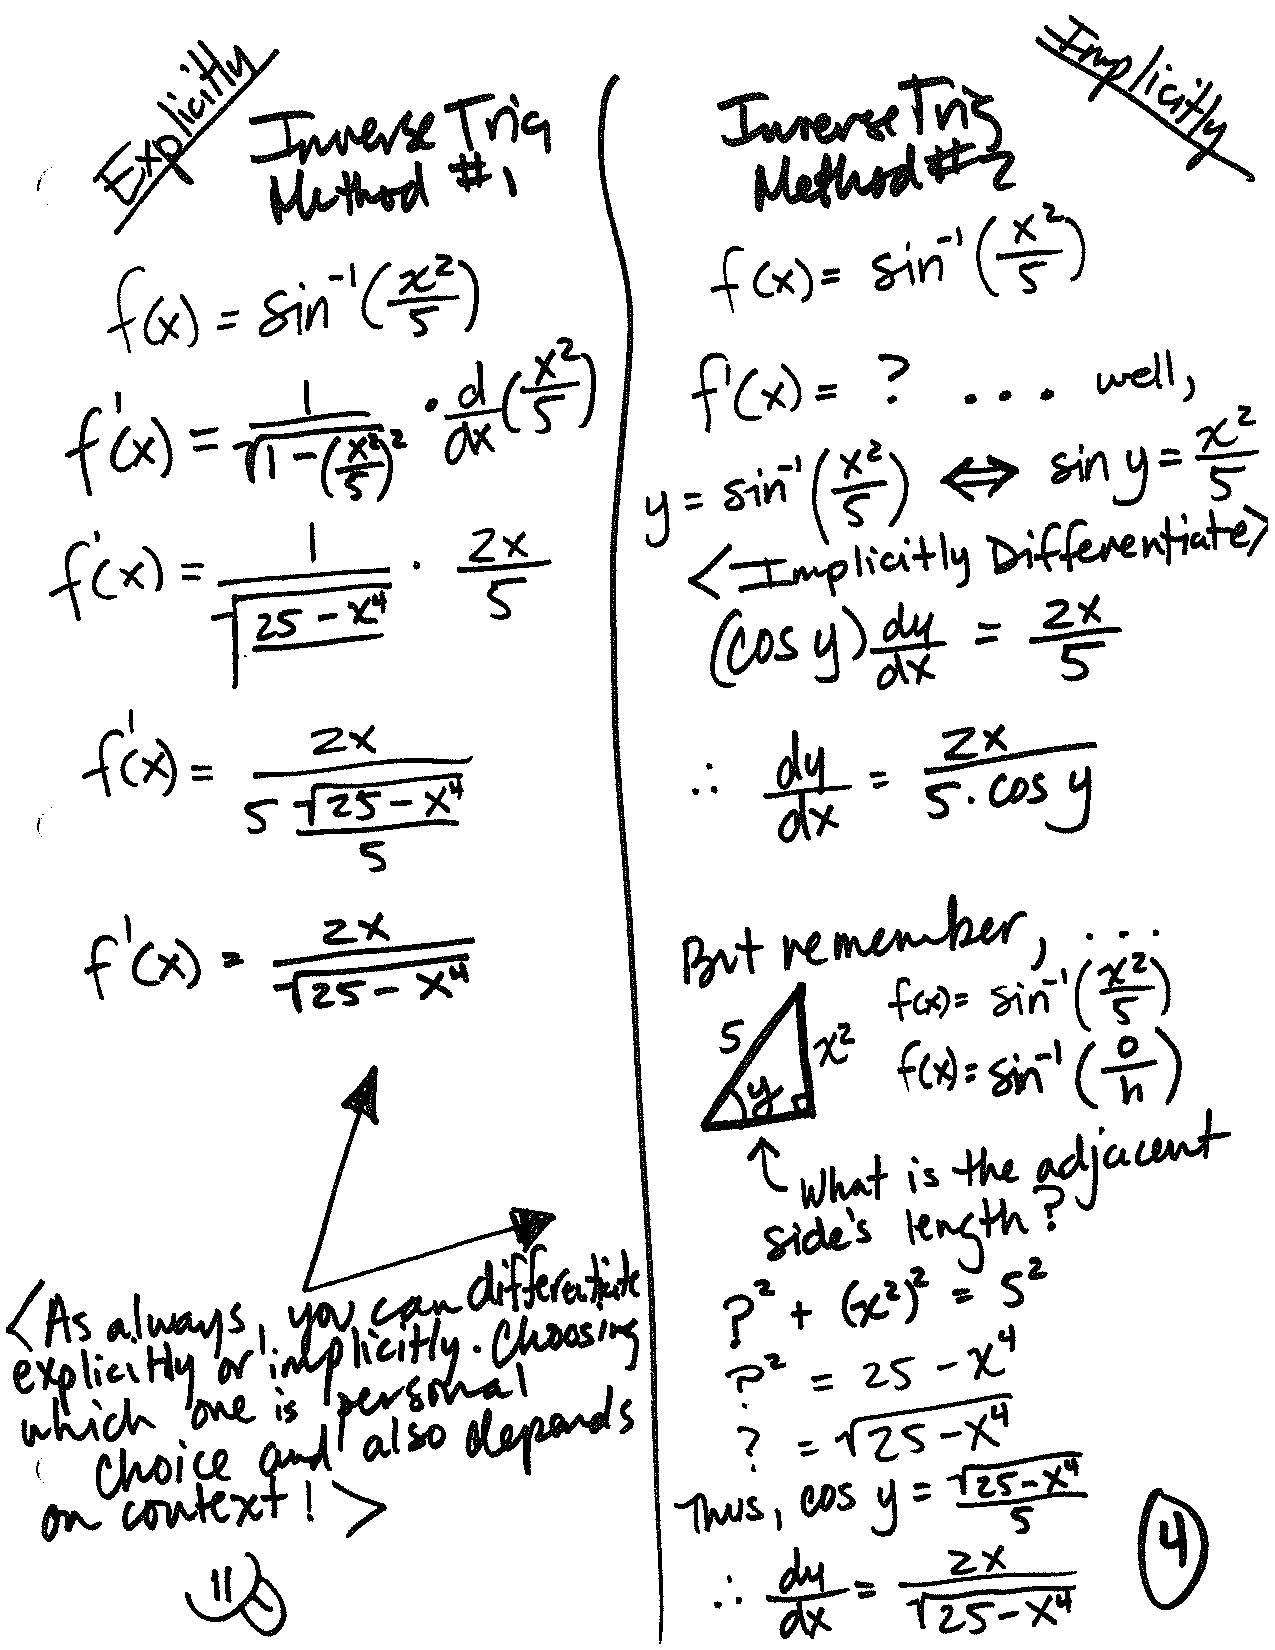 Explicitly
Inverse Trig
Method #1
f(x) = sin⁻¹(x²/5)
f'(x) = 1/√(1-(x²/5)²) · d/dx(x²/5)
f'(x) = 1/√((25-x⁴)/) · 2x/5
f'(x) = 2x/(5 √(25-x⁴)/5)
f'(x) = 2x/√(25-x⁴)
<As always, you can differentiate
explicitly or implicitly. Choosing
which one is personal
choice and also depends
on context! >
Implicitly
Inverse Trig
Method #2
f(x) = sin⁻¹(x²/5)
f'(x) = ? ... well,
y = sin⁻¹(x²/5) ⇔ sin y = x²/5
<Implicitly Differentiate>
(cos y) dy/dx = 2x/5
∴ dy/dx = 2x/(5 · cos y)
But remember, ...
f(x) = sin⁻¹(x²/5)
5 x²
f(x) = sin⁻¹(o/h)
y
What is the adjacent
side's length?
?² + (x²)² = 5²
?² = 25 - x⁴
? = √(25-x⁴)
Thus, cos y = √(25-x⁴)/5
∴ dy/dx = 2x/√(25-x⁴)
4